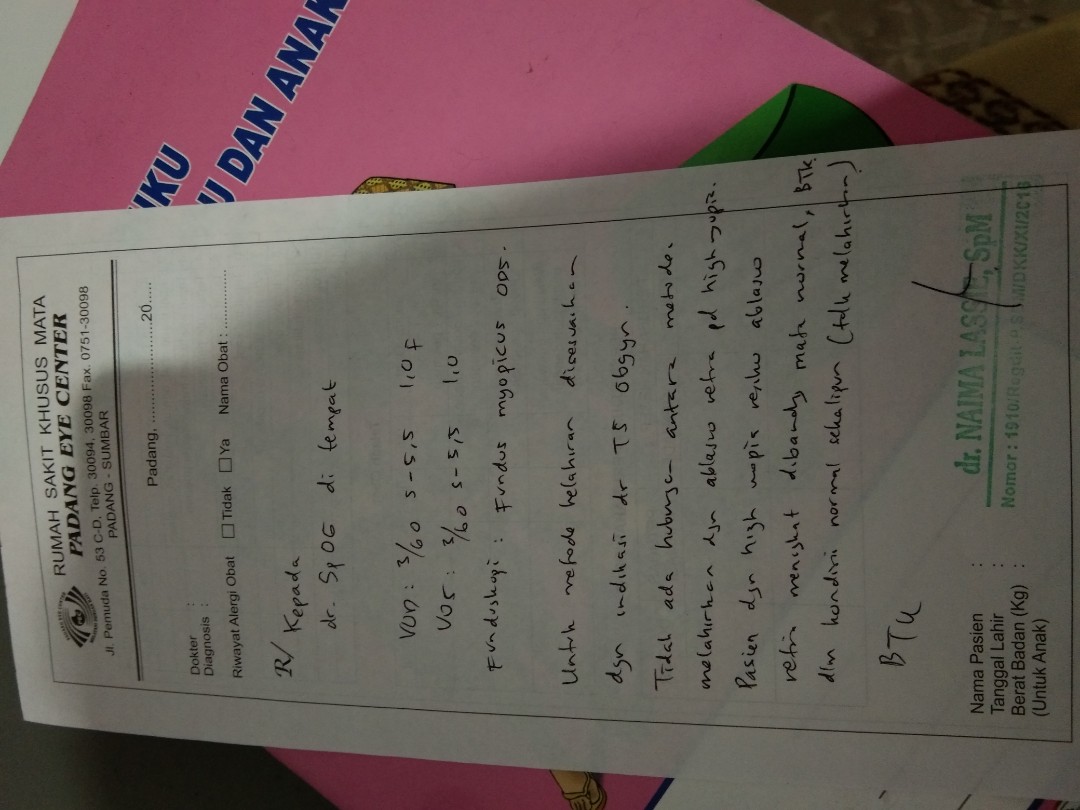 BUKU
IBU DAN ANAK
RUMAH SAKIT KHUSUS MATA
PADANG EYE CENTER
Jl. Pemuda No. 53 C-D. Telp. 30094, 30098 Fax. 0751-30098
PADANG - SUMBAR
Padang, ........................20.....
Dokter :
Diagnosis :
Riwayat Alergi Obat ☐ Tidak ☐ Ya Nama Obat : .............
R/ Kepada
dr. SpOG di tempat
VOD : 3/60 S-5,5 1,0 F
VOS : 3/60 S-5,5 1,0
Funduskopi : Fundus myopicus ODS.
Untuk metode kelahiran disesuaikan
dgn indikasi dr TS Obgyn.
Tidak ada hubungan antara metode
melahirkan dgn ablasio retina pd high myopia.
Pasien dgn high miopia resiko ablasio
retina meningkat dibanding mata normal, BTK
dlm kondisi normal sekalipun (tdk melahirkan)
BTK
dr. NAIMA LASSIE, SpM
Nomor : 1910/Reguli. /XI/2016
Nama Pasien :
Tanggal Lahir :
Berat Badan (Kg) :
(Untuk Anak)